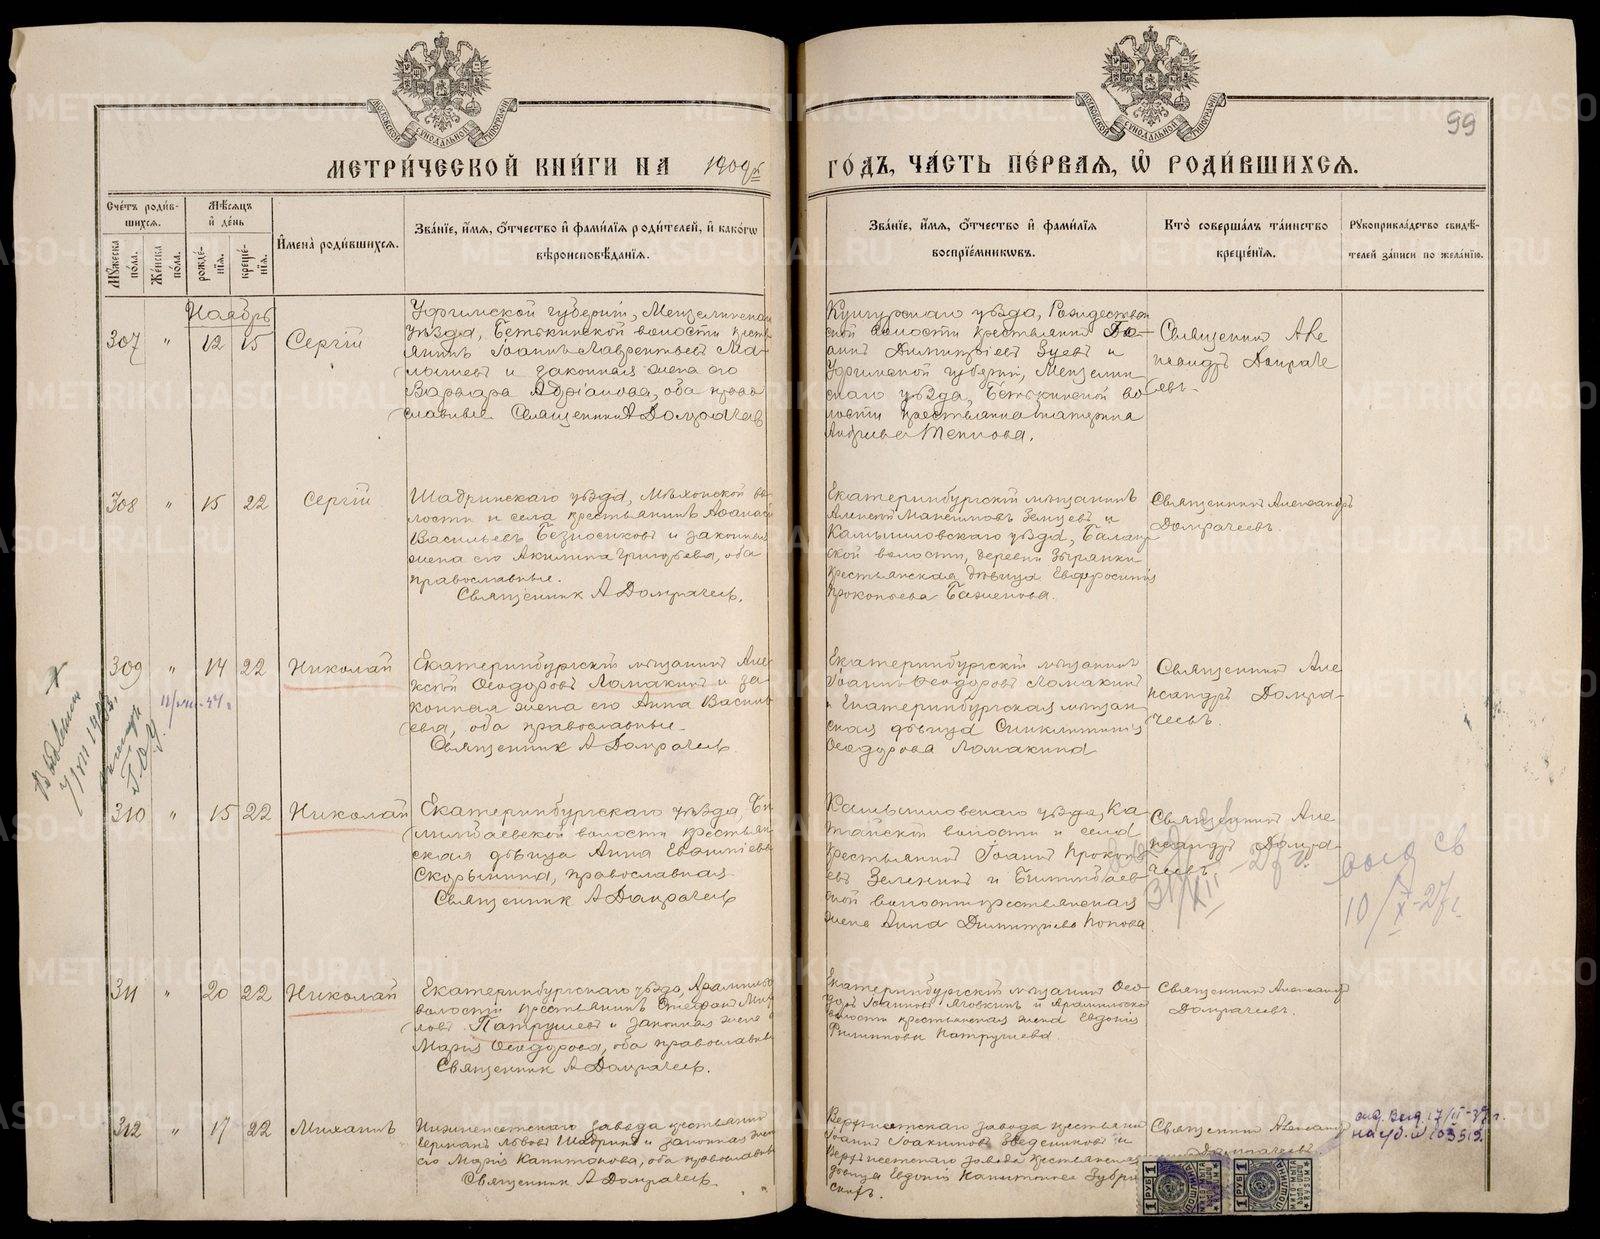 99
МЕТРИ́ЧЕСКОЙ КНИ́ГИ НА 1909й ГО́ДЪ, ЧА́СТЬ ПЕ́РВАЯ, Ѽ РОДИ́ВШИХСЯ.
Сче́тъ роди́в-
шихся.
Мꙋжеска по́ла.
Же́нска по́ла.
Мѣ́сяцъ и҆ де́нь
рожде́-нїя.
креще́-нїя.
И҆мена̀ роди́вшихся.
Зва́нїе, и҆́мя, ѻ҆́тчество и҆ фами́лїя роди́телей, и҆ како́гѡ
вѣроисповѣ́данїя.
Зва́нїе, и҆́мя, ѻ҆́тчество и҆ фами́лїя
воспрїе́мникѡвъ.
Кто̀ соверша́лъ та́инство
креще́нїя.
Рꙋкоприкла́дство свидѣ́-
телей за́писи по жела́нїю.
Ноябрь
307 " 12 15 Сергій
Уфимской губерніи, Мензелинскаго
уѣзда, Бетькинской волости кресть
янинъ Іоаннъ Лаврентьевъ Ма-
лышевъ и законная жена его
Варвара Адріанова, оба право
славные. Священникъ А Домрачевъ
Кунгурскаго уѣзда, Рождествен
ской волости крестьянинъ Іо-
аннъ Димитріевъ Зуевъ и
Уфимской губерніи, Мензелин
скаго уѣзда, Бетькинской во
лости крестьянка Екатерина
Священникъ Але
ксандръ Домраче
евъ.
308 " 15 22 Сергій
Шадринскаго уѣзда, Мѣхонской во-
лости и села крестьянинъ Афанасій
Васильевъ Безносиковъ и законная
жена его Акилина Григорьева, оба
православные.
Священник А Домрачевъ.
Екатеринбургскій мѣщанинъ
Алексѣй Максимовъ и
Камышловскаго уѣзда,
ской волости, деревни Зырянки
крестьянская дѣвица Евфросинія
Прокопьева Баженова.
Священникъ Александръ
Домрачевъ.
309 " 14 22 Николай
Екатеринбургскій мѣщанинъ Але
ксѣй Ѳеодоровъ Ломакинъ и за
конная жена его Анна Василь
ева, оба православные.
Священник А Домрачевъ
Екатеринбургскій мѣщанинъ
Іоаннъ Ѳеодоровъ Ломакинъ
и Екатеринбургская мѣщан
ская дѣвица Синклитикія
Ѳеодорова Ломакина
Священникъ Але
ксандръ Домра-
чевъ.
310 " 15 22 Николай
Екатеринбургскаго уѣзда, Би
лимбаевской волости крестьян
ская дѣвица Анна Евѳиміева
Скорынина, православная
Священник А Домрачевъ
Камышловскаго уѣзда, Ка
тайской волости и села
крестьянинъ Іоаннъ Прокопь
евъ Зеленинъ и Билимбаев
ской волости крестьянская
жена Анна Димитріева Попова
Священникъ Але
ксандръ Домра-
чевъ.
31/XII - 27 г.
выд св
10/X-27 г.
311 " 20 22 Николай
Екатеринбургскаго уѣзда, Арамильской
волости крестьянинъ Стефанъ
Патрушевъ и законная жена
Марія Ѳеодорова, оба православные
Священник А Домрачевъ.
Екатеринбургскій мѣщанинъ Ѳео
доръ Іоанновъ и Арамильской
волости крестьянская жена Евдокія
Филиппова Патрушева
Священникъ Александръ
Домрачевъ.
312 " 17 22 Михаилъ
Нижнеисетскаго завода крестьянинъ
Германъ Львовъ Шадринъ и законная жена
его Марія Капитонова, оба православные
Священник А Домрачевъ
Верхисетскаго завода крестьянинъ
Іоаннъ Іоакимовъ и
Верхъисетскаго завода крестьянская
дѣвица Евдокія Капитонова Зубри
Священникъ Александръ
Домрачевъ
1 РУБ ПОШЛИНА
1 РУБ ПОШЛИНА